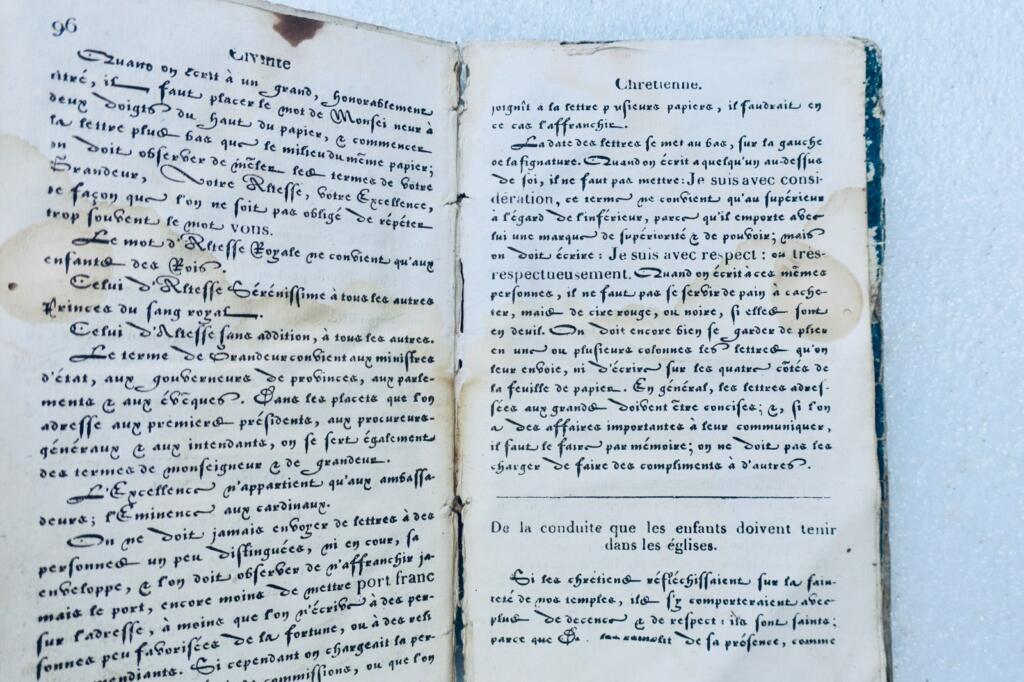 96
Civilité
Quand on écrit à un grand, honorablement
titré, il faut placer le mot de Monsei neur à
deux doigts du haut du papier, & commencer
la lettre plus bas que le milieu du même papier;
on doit observer de mêler les termes de Votre
Grandeur, Votre Altesse, votre Excellence,
de façon que l'on ne soit pas obligé de répéter
trop souvent le mot vous.
Le mot d'Altesse Royale ne convient qu'aux
enfants des Rois.
Celui d'Altesse Sérénissime à tous les autres
Princes du sang royal.
Celui d'Altesse sans addition, à tous les autres.
Le terme de Grandeur convient aux ministres
d'état, aux gouverneurs de provinces, aux parle-
ments & aux évêques. Dans les placets que l'on
adresse aux premiers présidents, aux procureurs-
généraux & aux intendants, on se sert également
des termes de monseigneur & de grandeur.
L'Excellence n'appartient qu'aux ambassa-
deurs; l'Eminence aux cardinaux.
On ne doit jamais envoyer de lettres à des
personnes un peu distinguées, ni en cour, sa
enveloppe, & l'on doit observer de n'affranchir ja-
mais le port, encore moins de mettre port franc
sur l'adresse, à moins que l'on n'écrive à des per-
sonnes peu favorisées de la fortune, ou à des reli
mendiants. Si cependant on chargeait la per-
commissions, ou que l'on
Chrétienne.
joignît à la lettre p usieurs papiers, il faudrait en
ce cas l'affranchir.
La date des lettres se met au bas, sur la gauche
de la signature. Quand on écrit a quelqu'un au-dessus
de soi, il ne faut pas mettre: Je suis avec consi-
dération, ce terme ne convient qu'au supérieur
à l'égard de l'inférieur, parce qu'il emporte avec
lui une marque de supériorité & de pouvoir; mais
on doit écrire: Je suis avec respect: ou très-
respectueusement. Quand on écrit à ces mêmes
personnes, il ne faut pas se servir de pain à cache-
ter, mais de cire rouge, ou noire, si elles sont
en deuil. On doit encore bien se garder de plier
en une ou plusieurs colonnes les lettres qu'on
leur envoie, ni d'écrire sur les quatre côtés de
la feuille de papier. En général, les lettres adres-
sées aux grands doivent être concises; &, si l'on
a des affaires importantes à leur communiquer,
il faut le faire par mémoire; on ne doit pas les
charger de faire des compliments à d'autres.
De la conduite que les enfants doivent tenir
dans les églises.
Si les chrétiens réfléchissaient sur la sain-
teté de nos temples, ils s'y comporteraient avec
plus de decence & de respect: ils sont saints;
parce que de sa présence, comme